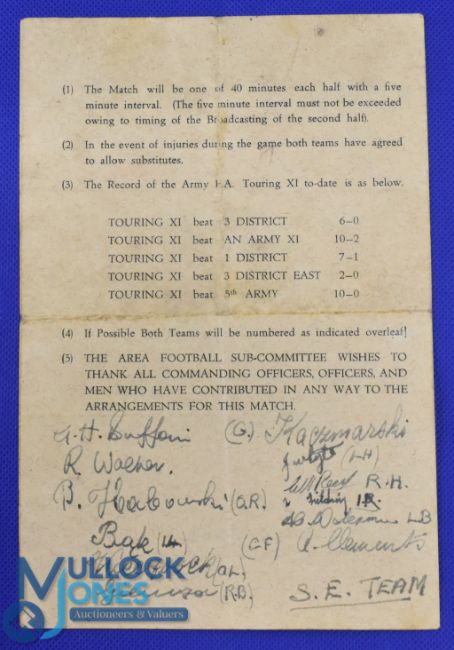 (1) The Match will be one of 40 minutes each half with a five
minute interval. (The five minute interval must not be exceeded
owing to timing of the Broadcasting of the second half).
(2) In the event of injuries during the game both teams have agreed
to allow substitutes.
(3) The Record of the Army F.A. Touring XI to-date is as below.
TOURING XI beat 3 DISTRICT 6–0
TOURING XI beat AN ARMY XI 10–2
TOURING XI beat 1 DISTRICT 7–1
TOURING XI beat 3 DISTRICT EAST 2–0
TOURING XI beat 5th ARMY 10–0
(4) If Possible Both Teams will be numbered as indicated overleaf
(5) THE AREA FOOTBALL SUB-COMMITTEE WISHES TO
THANK ALL COMMANDING OFFICERS, OFFICERS, AND
MEN WHO HAVE CONTRIBUTED IN ANY WAY TO THE
ARRANGEMENTS FOR THIS MATCH.
(G.) Kaczmarski
R. (L.H)
R.H.
B. (O.R.) I.R.
L.B
(C.F) A. Clements
(O.L.)
(R.B.) S.E. TEAM
MULLOCK
JONES
Auctioneers & Valuers